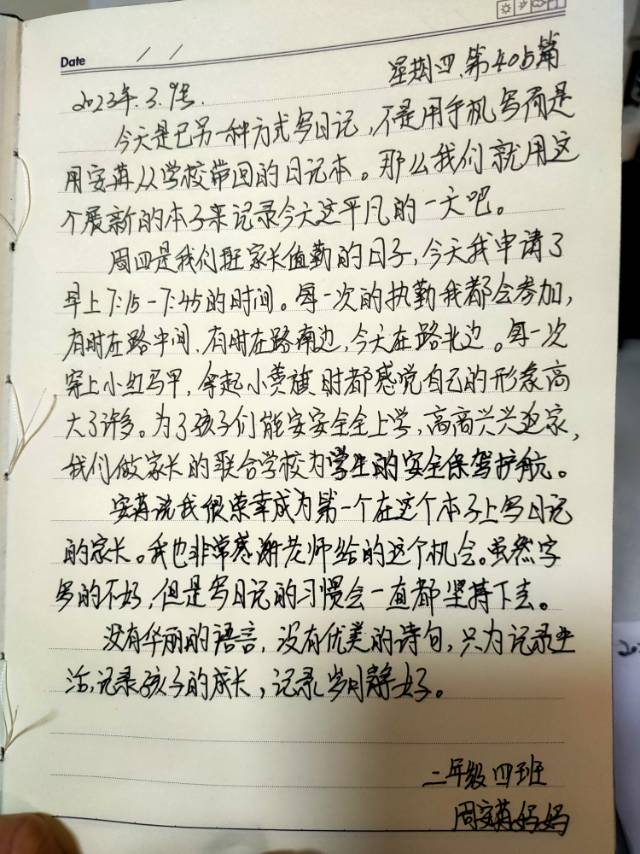 Date / /
星期四.第405篇
2023年.3.9号.
今天是已另一种方式写日记,不是用手机写而是
用安苒从学校带回的日记本。那么我们就用这
个展新的本子来记录今天这平凡的一天吧。
周四是我们班家长值勤的日子,今天我申请了
早上7:15-7:45的时间。每一次的执勤我都会参加,
有时在路中间、有时在路南边,今天在路北边。每一次
穿上小红马甲,拿起小黄旗时都感觉自己的形象高
大了许多。为了孩子们能安安全全上学,高高兴兴返家,
我们做家长的联合学校为学生的安全保驾护航。
安苒说我很荣幸成为第一个在这个本子上写日记
的家长。我也非常感谢老师给的这个机会。虽然字
写的不好,但是写日记的习惯会一直都坚持下去。
没有华丽的语言,没有优美的诗句,只为记录生
活,记录孩子的成长,记录岁月静好。
二年级四班
周安苒妈妈